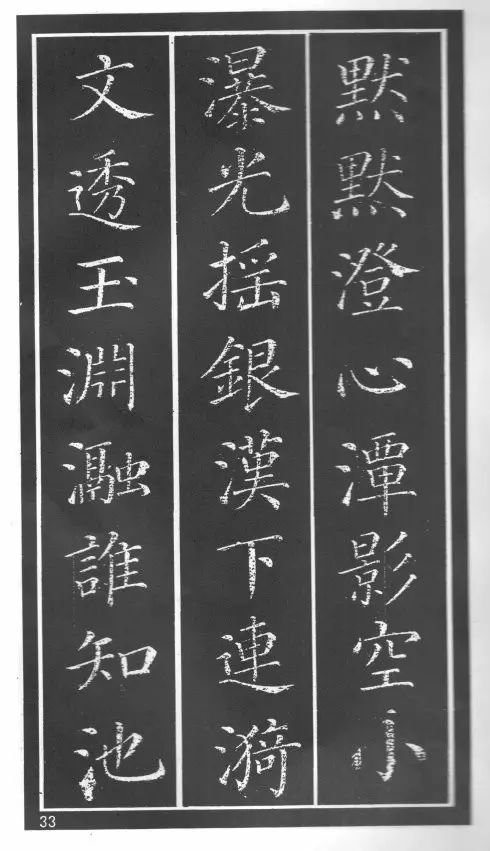 默默澄心潭影空小
瀑光摇銀漢下連漪
文透玉淵瀜誰知池
33